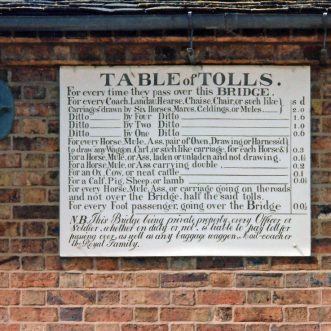 TABLE of TOLLS.
For every time they pass over this BRIDGE.
For every Coach, Landau, Hearse, Chaise, Chair, or such like s d
Carriages drawn by Six Horses, Mares, Geldings, or Mules 2.0
Ditto by Four Ditto 1.6
Ditto by Two Ditto 1.0
Ditto by One Ditto 0.6
For every Horse, Mule, Ass, pair of Oxen, Drawing or Harness'd
to draw any Waggon, Cart, or such like carriage, for each Horse &c 0.3
For a Horse, Mule, or Ass, laden or unladen and not drawing, 0.1½
For a Horse, Mule, or Ass carrying double 0.2
For an Ox, Cow, or neat cattle 0.1
For a Calf, Pig, Sheep or lamb 0.0½
For every Horse, Mule, Ass, or carriage going on the roads
and not over the Bridge, half the said tolls.
For every Foot passenger, going over the Bridge 0.0½
N.B. This Bridge being private property, every Officer or
Soldier, whether on duty or not, is liable to pay toll for
passing over, as well as any baggage waggon, Mail-coach or
the Royal Family.